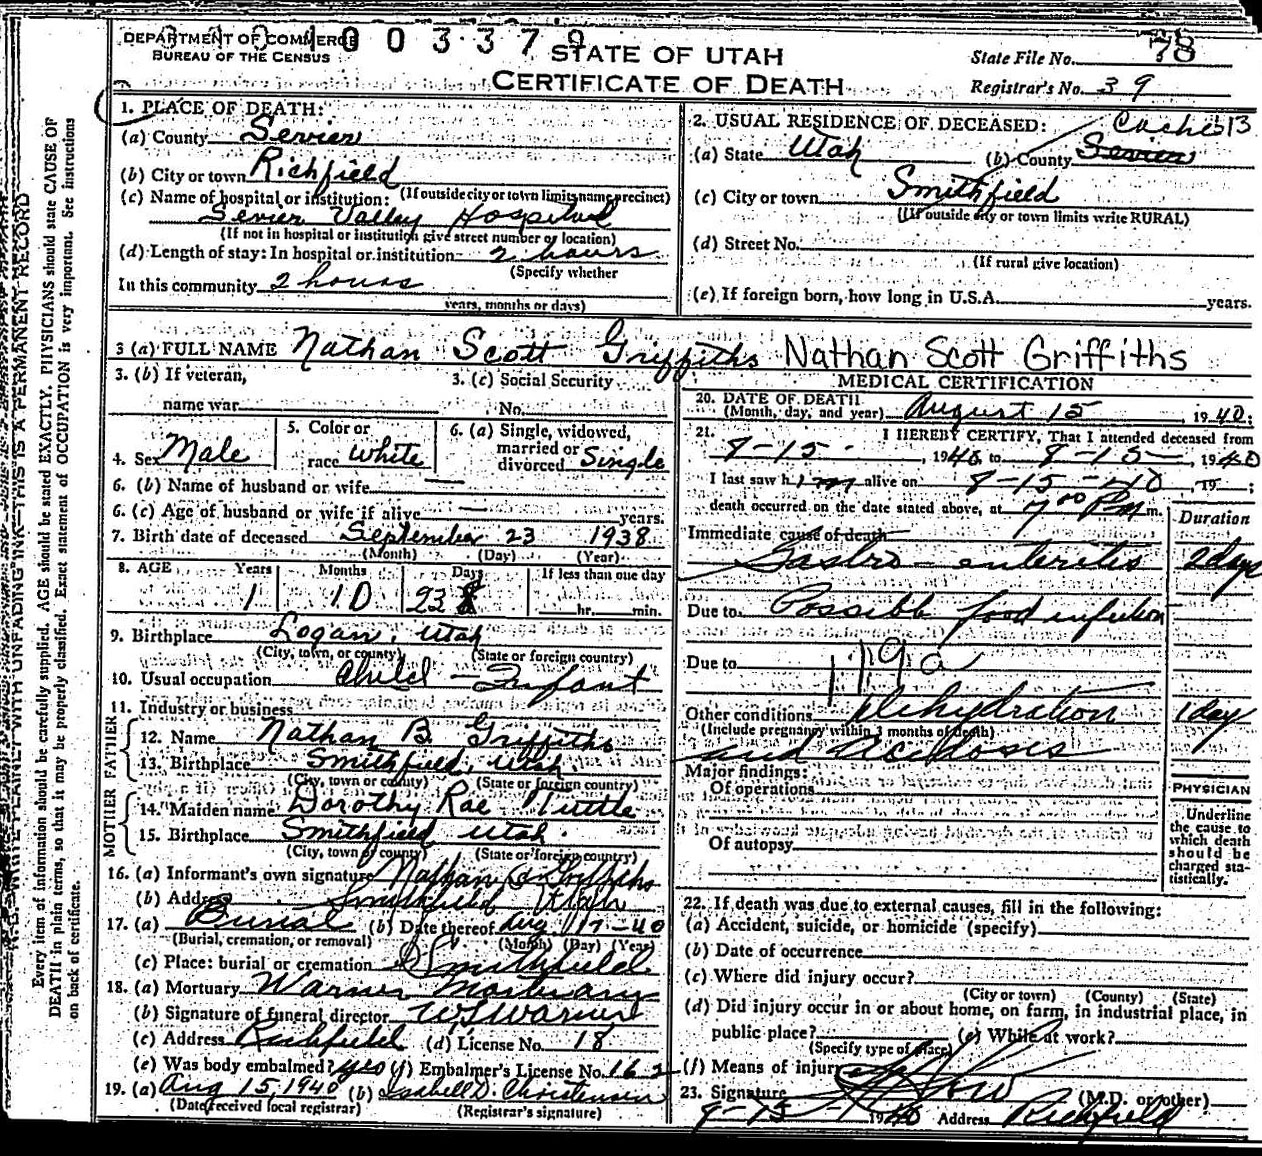 1003379
DEPARTMENT OF COMMERCE
BUREAU OF THE CENSUS
STATE OF UTAH
CERTIFICATE OF DEATH
State File No. 78
Registrar's No. 39
1. PLACE OF DEATH:
(a) County Sevier
(b) City or town Richfield
(If outside city or town limits name precinct)
(c) Name of hospital or institution:
Sevier Valley Hospital
(If not in hospital or institution give street number or location)
(d) Length of stay: In hospital or institution 2 hours
(Specify whether
In this community 2 hours
years, months or days)
2. USUAL RESIDENCE OF DECEASED: Cache 13
(a) State Utah (b) County Sevier
(c) City or town Smithfield
(If outside city or town limits write RURAL)
(d) Street No.
(If rural give location)
(e) If foreign born, how long in U.S.A. years.
3 (a) FULL NAME Nathan Scott Griffiths Nathan Scott Griffiths
3. (b) If veteran,
name war
3. (c) Social Security
No.
4. Sex Male
5. Color or
race white
6. (a) Single, widowed,
married or
divorced Single
6. (b) Name of husband or wife
6. (c) Age of husband or wife if alive years.
7. Birth date of deceased September 23 1938
(Month) (Day) (Year)
8. AGE Years Months Days If less than one day
1 10 23 hr. min.
9. Birthplace Logan, Utah
(City, town, or county) (State or foreign country)
10. Usual occupation Child - Infant
11. Industry or business
FATHER
12. Name Nathan B Griffiths
13. Birthplace Smithfield, Utah
(City, town or county) (State or foreign country)
MOTHER
14. Maiden name Dorothy Rae Tuttle
15. Birthplace Smithfield Utah.
(City, town or county) (State or foreign country)
16. (a) Informant's own signature Nathan B Griffiths
(b) Address Smithfield Utah
17. (a) Burial (b) Date thereof Aug 17-40
(Burial, cremation, or removal) (Month) (Day) (Year)
(c) Place: burial or cremation Smithfield
18. (a) Mortuary Warner Mortuary
(b) Signature of funeral director W. S. Warner
(c) Address Richfield (d) License No. 18
(e) Was body embalmed? yes (f) Embalmer's License No. 162
19. (a) Aug 15, 1940 (b) Isabell D. Christensen
(Date received local registrar) (Registrar's signature)
MEDICAL CERTIFICATION
20. DATE OF DEATH
(Month, day, and year) August 15 1940;
21. I HEREBY CERTIFY, That I attended deceased from
8-15- , 1940 to 8-15- , 1940
I last saw him alive on 8-15-40 , 19 ;
death occurred on the date stated above, at 7:00 P m.
Duration
Immediate cause of death
Gastro-enteritis 2 days
Due to Possible food infection
Due to 119a
Other conditions Dehydration 1 day
(Include pregnancy within 3 months of death)
and Acidosis
Major findings:
Of operations
Of autopsy
PHYSICIAN
Underline
the cause to
which death
should be
charged sta-
tistically.
22. If death was due to external causes, fill in the following:
(a) Accident, suicide, or homicide (specify)
(b) Date of occurrence
(c) Where did injury occur?
(City or town) (County) (State)
(d) Did injury occur in or about home, on farm, in industrial place, in
public place? (e) While at work?
(Specify type of place)
(f) Means of injury
23. Signature (M.D. or other)
8-15- 1940 Address Richfield
N.B. WRITE PLAINLY WITH UNFADING INK—THIS IS A PERMANENT RECORD
Every item of information should be carefully supplied. AGE should be stated EXACTLY. PHYSICIANS should state CAUSE OF
DEATH in plain terms, so that it may be properly classified. Exact statement of OCCUPATION is very important. See instructions
on back of certificate.